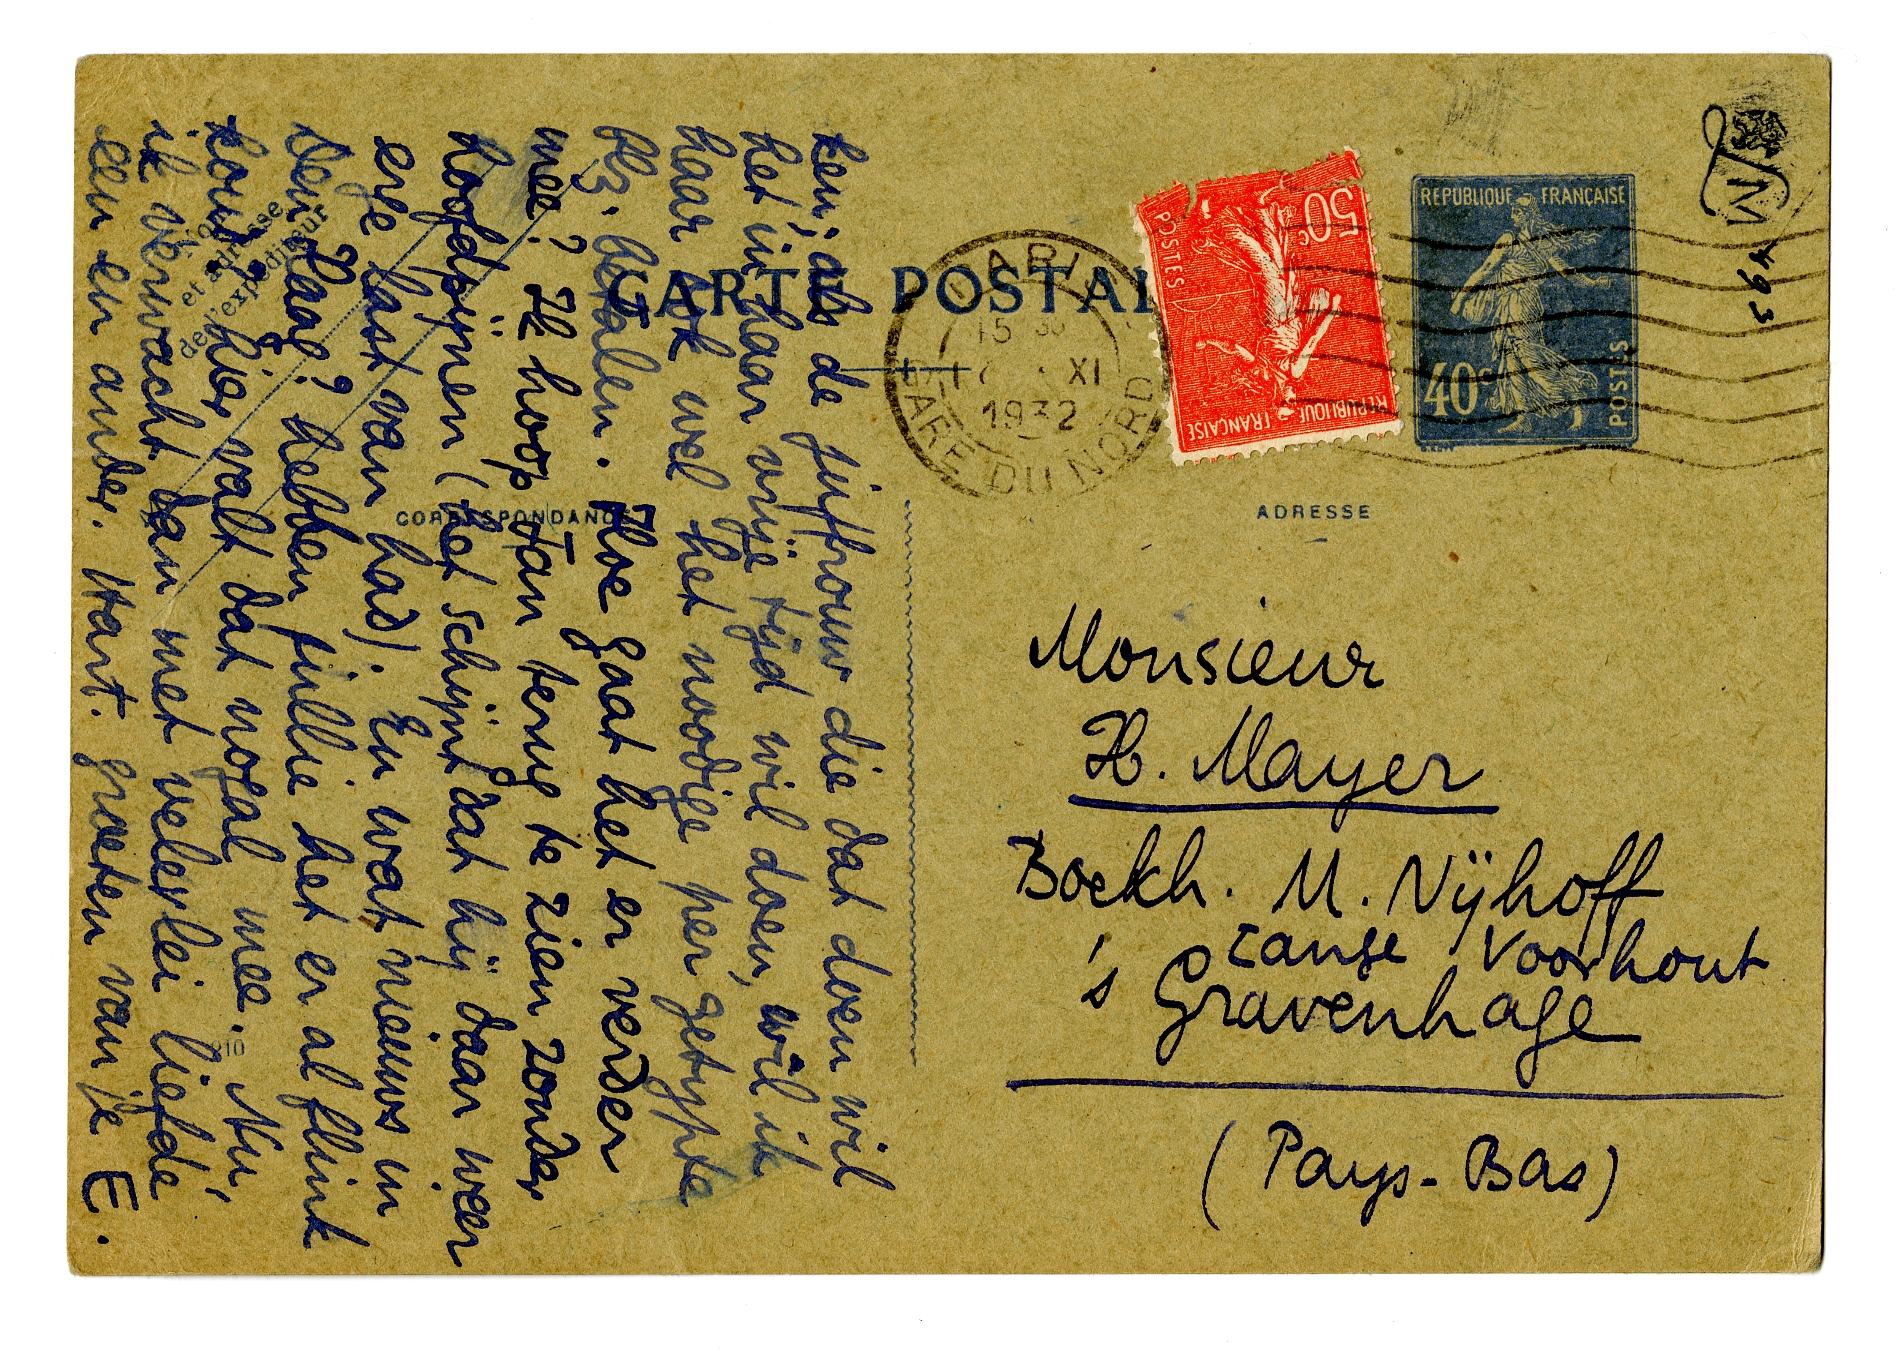 CARTE POSTALE
REPUBLIQUE FRANÇAISE
40c
POSTES
50c
POSTES
REPUBLIQUE FRANÇAISE
PARIS
15 30
XI
1932
GARE DU NORD
M 493
Nom
et adresse
de l'expéditeur
CORRESPONDANCE
ADRESSE
ken; als de juffrouw die dat doen wil
het in haar vrije tijd wil doen, wil ik
haar ook wel het noodige per getypte
blz. betalen. Hoe gaat het er verder
mee? Ik hoop Jan terug te zien zonder
hoofdpijnen (het schijnt dat hij daar weer
erge last van had). En wat nieuws in
Den Haag? hebben jullie het er al flink
koud? hier valt dat nogal mee. Nu,
ik verwacht dan met velerlei liefde
een en ander. Hart. groeten van je E.
910
Monsieur
H. Mayer
Boekh. M. Nijhoff
Lange Voorhout
's Gravenhage
(Pays-Bas)